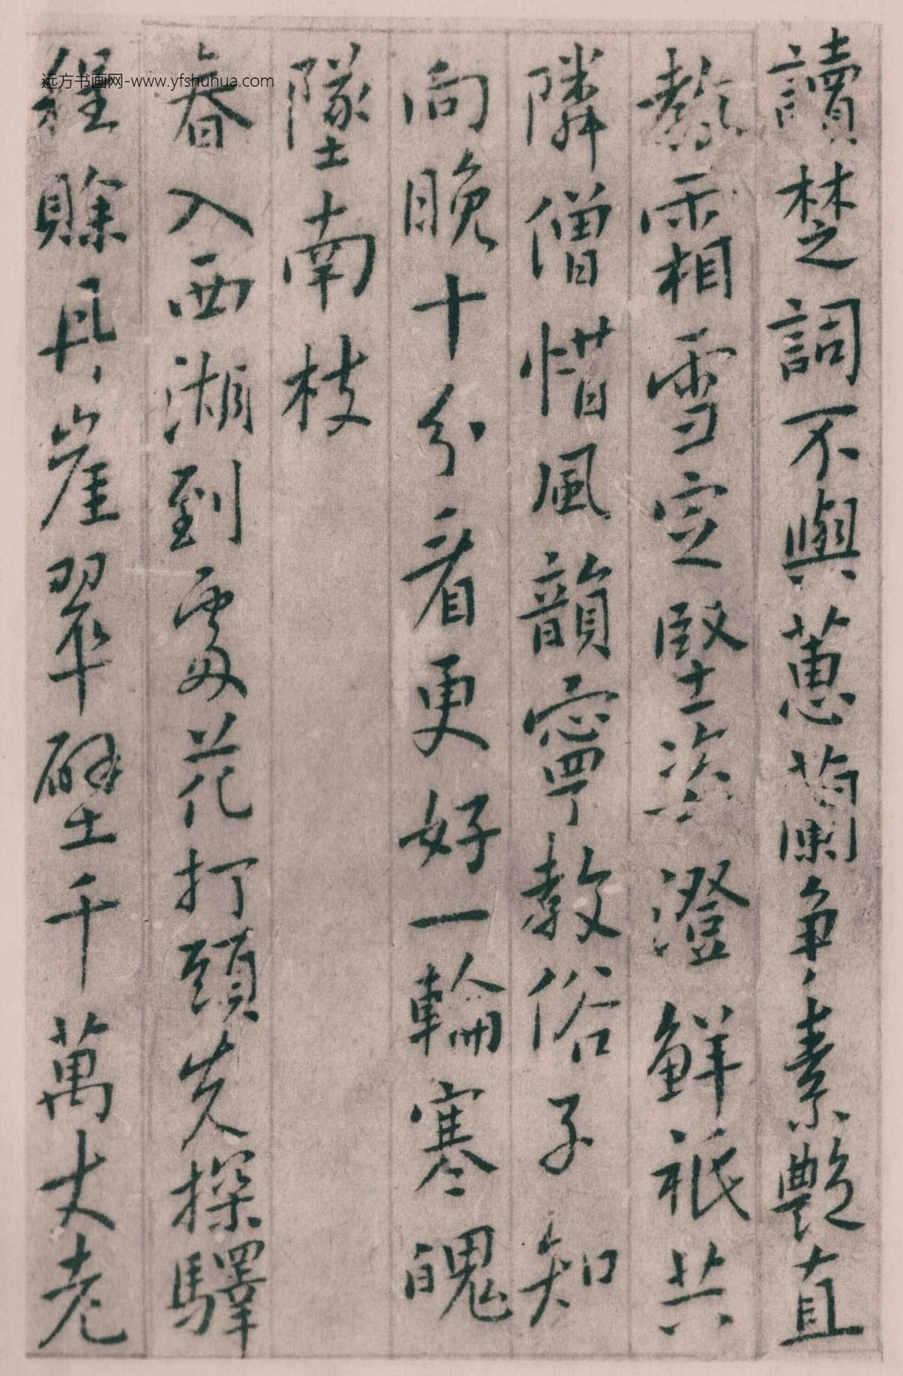 讀楚詞不與蕙蘭爭素艷直
教霜雪空堅姿澄鮮祇共
隣僧惜風韻寧教俗子知
向晚十分看更好一輪寒魄
墜南枝
春入西湖到處花打頭先探驛
程賒具崖翠壁千萬丈老
远方书画网-www.yfshuhua.com